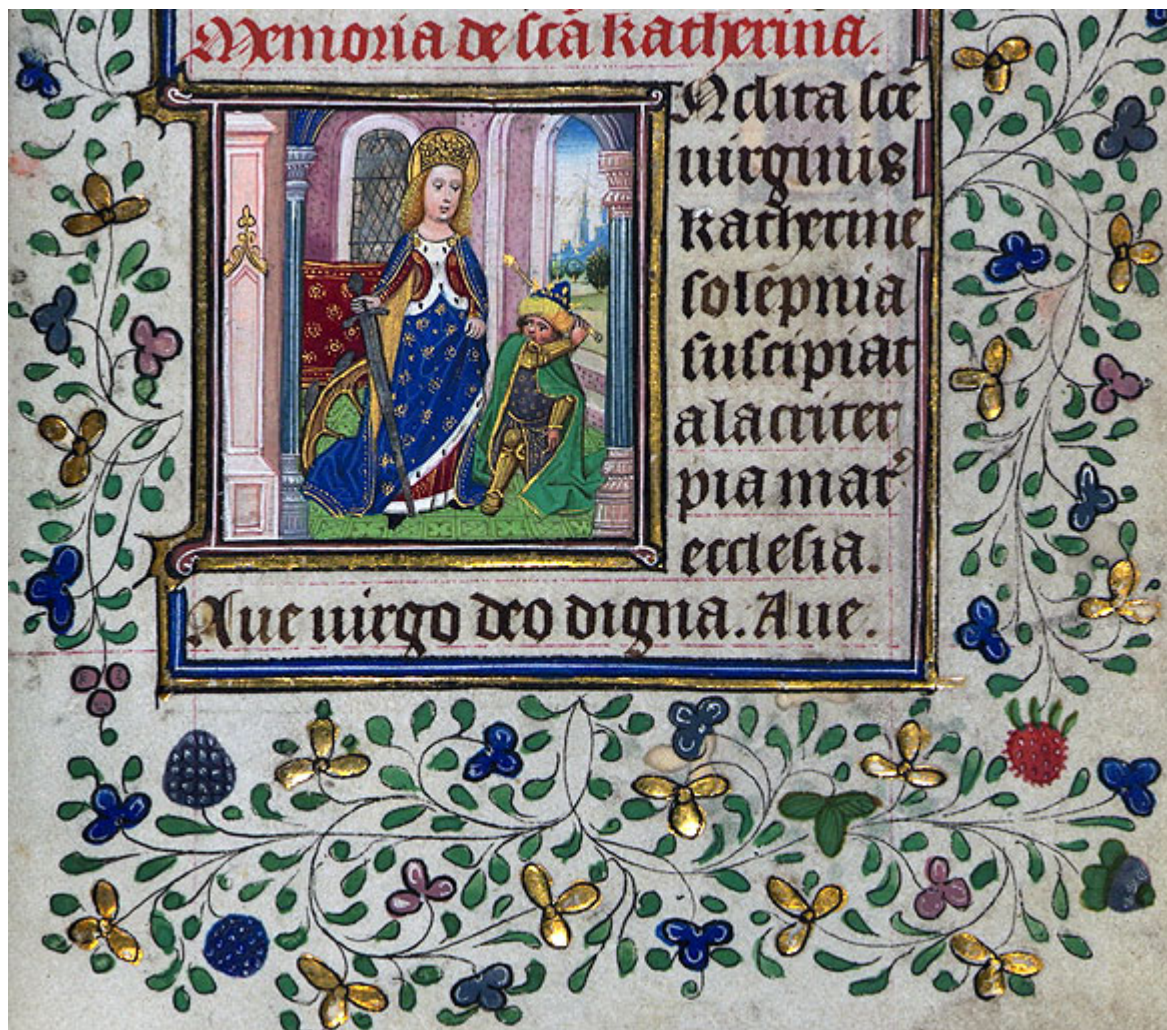 Memoria de scã katherina.
Nclita scẽ
uirginis
katherine
solẽpnia
suscipiat
alacriter
pia mat᷒
ecclesia.
Aue uirgo deo digna. Aue.